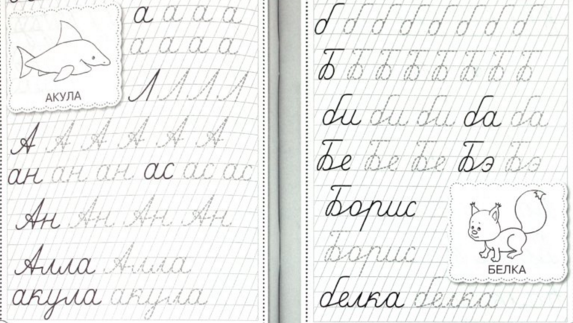 а а а а а
а а а а а
АКУЛА
Л Л Л Л
А А А А А А
ан ан ан ас ас ас
Ан Ан Ан Ан
Алла Алла
акула акула
б б б б б б б б
Б Б Б Б Б Б Б Б
би би би ба ба
Бе Бе Бе Бэ Бэ
Борис
Борис
БЕЛКА
белка белка